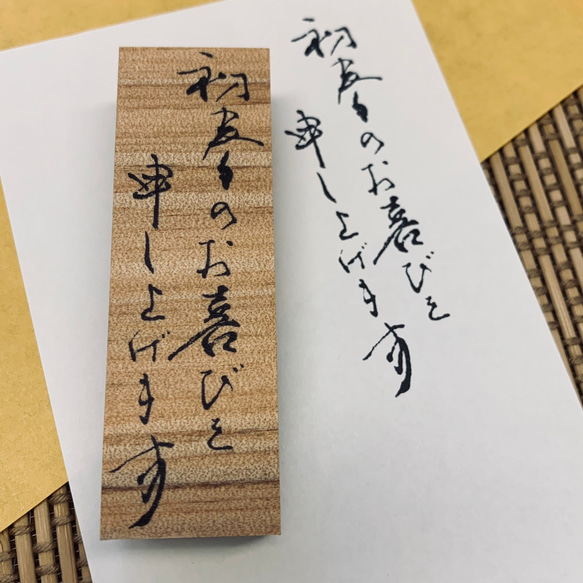 初春のお喜びを
申し上げます
初春のお喜びを
申し上げます